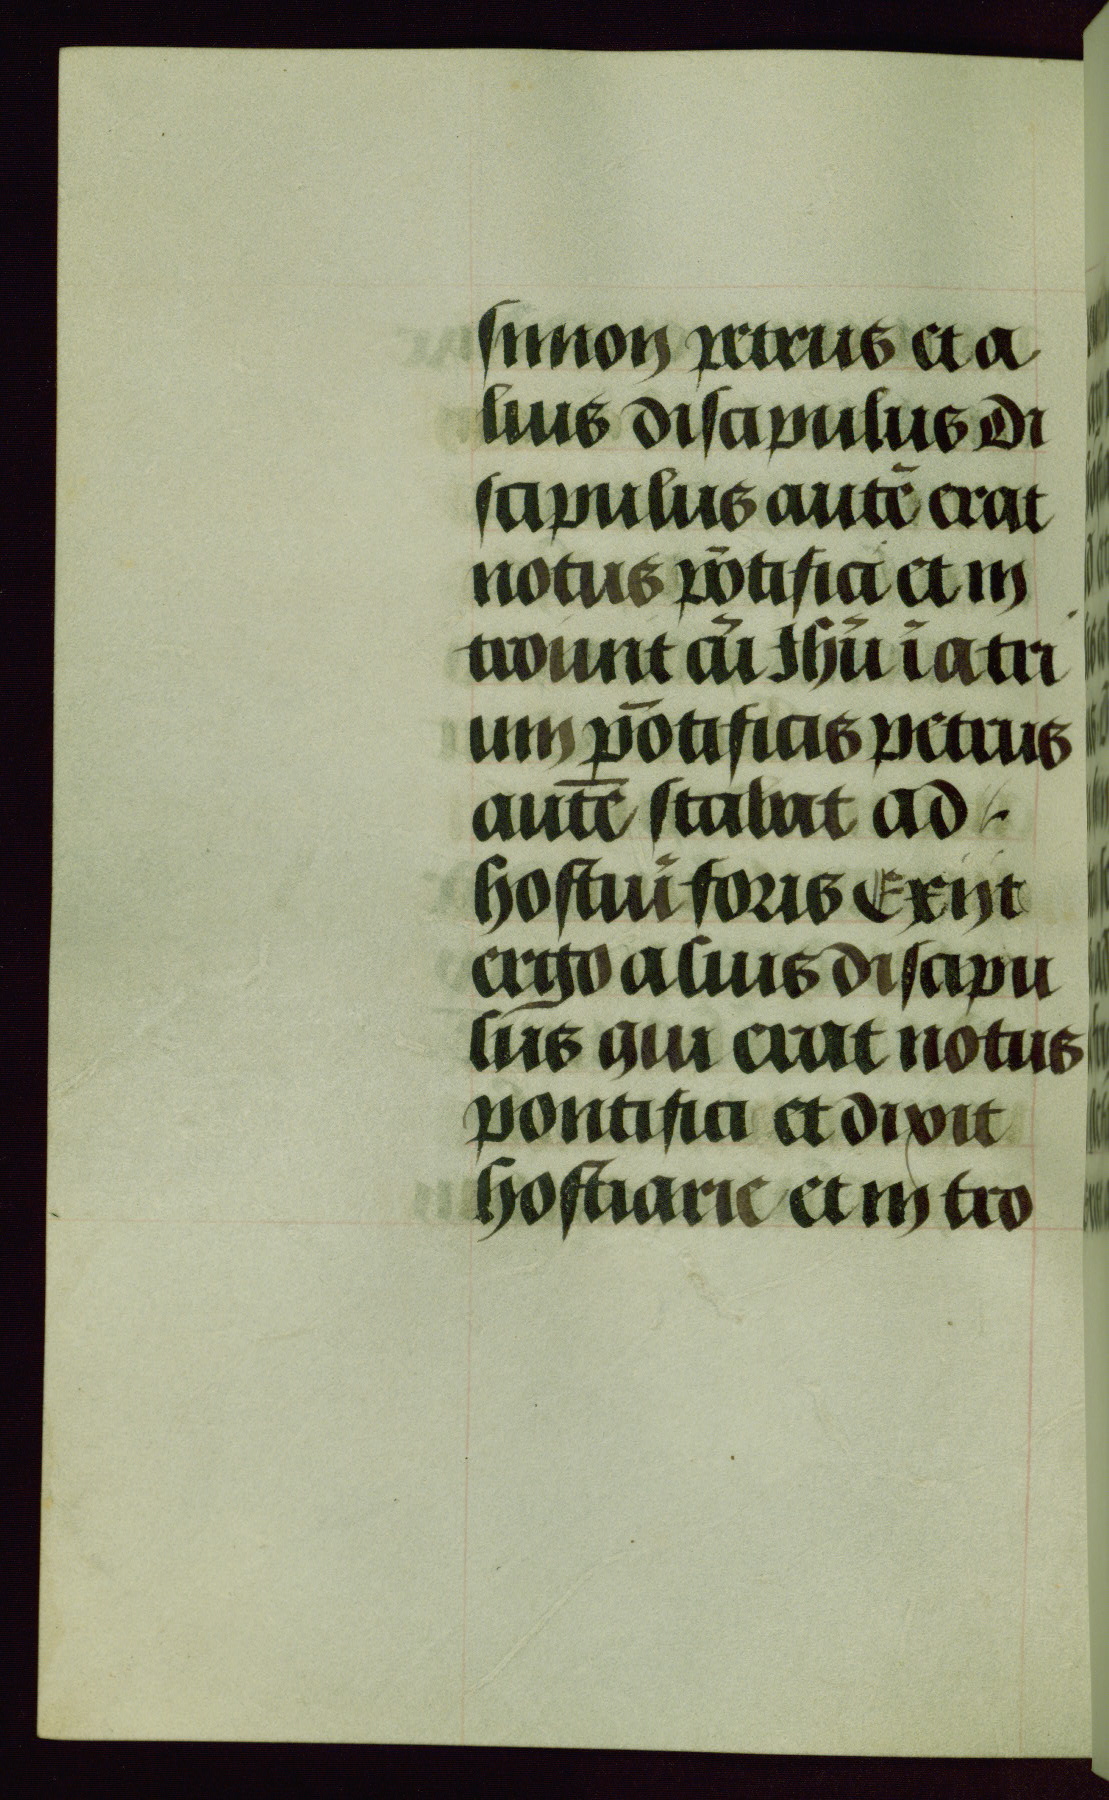 simon petrus et a
lius discipulus Di
scipulus autē erat
notus pōtifici et in
troiunt cū Jhū ī atri
um pōtificis petrus
autē stabat ad
hostiū foris Exijt
ergo alius discipu
lus qui erat notus
pontifici et dixit
hostiarie et in tro